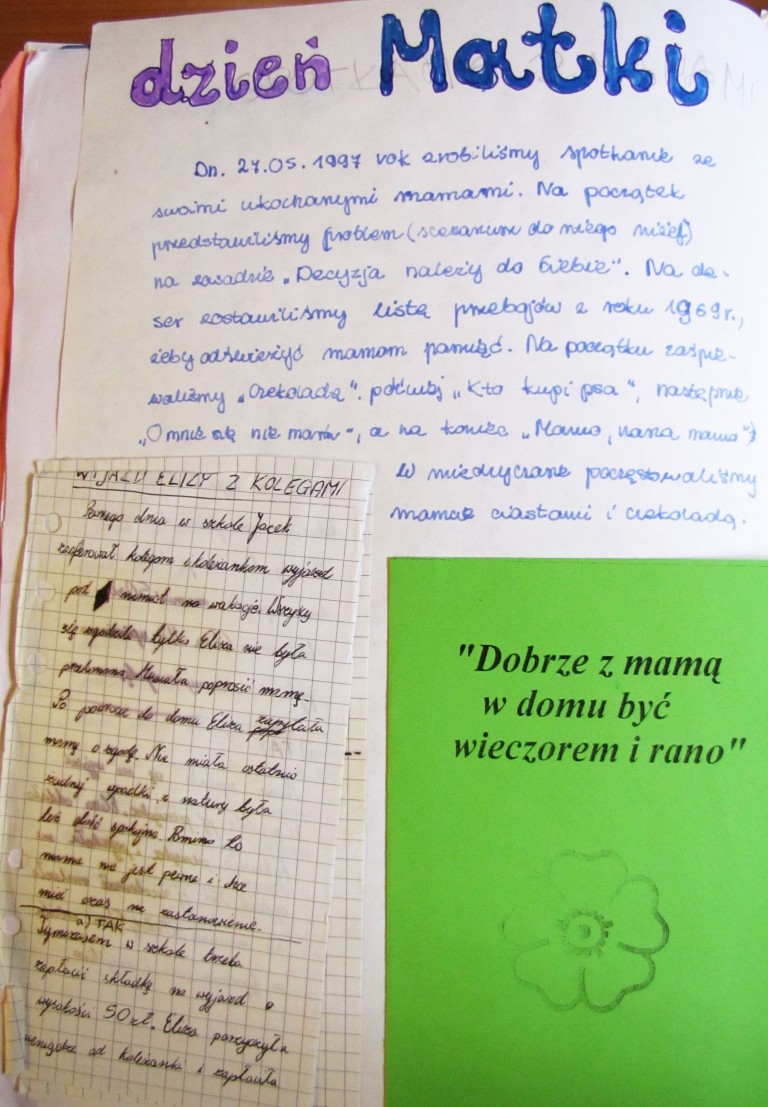 dzień Matki
Dn. 27.05.1997 rok zrobiliśmy spotkanie ze
swoimi ukochanymi mamami. Na początek
przedstawiliśmy problem (scenariusz do niego niżej)
na zasadzie „Decyzja należy do Ciebie". Na de-
ser zostawiliśmy listę przebojów z roku 1969r.,
żeby odświeżyć mamom pamięć. Na początku zaśpie-
waliśmy „Czekoladę", później „Kto kupi psa", następnie
„O mnie się nie martw", a na koniec „Mamo, nasza mamo")
W międzyczasie poczęstowaliśmy
mamcie ciastami i czekoladą.
WYJAZD ELIZY Z KOLEGAMI
Pewnego dnia w szkole Jacek
zaoferował kolegom i koleżankom wyjazd
pod namiot na wakacje. Wszyscy
się zgodzili tylko Eliza nie była
przekonana. Musiała poprosić mamę.
Po powrocie do domu Eliza zapytała
mamę o zgodę. Nie miała ostatnio
żadnej wpadki, z natury była
też dość spokojna. Pomimo to
mama nie jest pewna i chce
mieć czas na zastanowienie.
a) TAK
Tymczasem w szkole trzeba
zapłacić składkę na wyjazd o
wysokości 50 zł. Eliza pożyczyła
pieniądze od koleżanki i zapłaciła
"Dobrze z mamą
w domu być
wieczorem i rano"